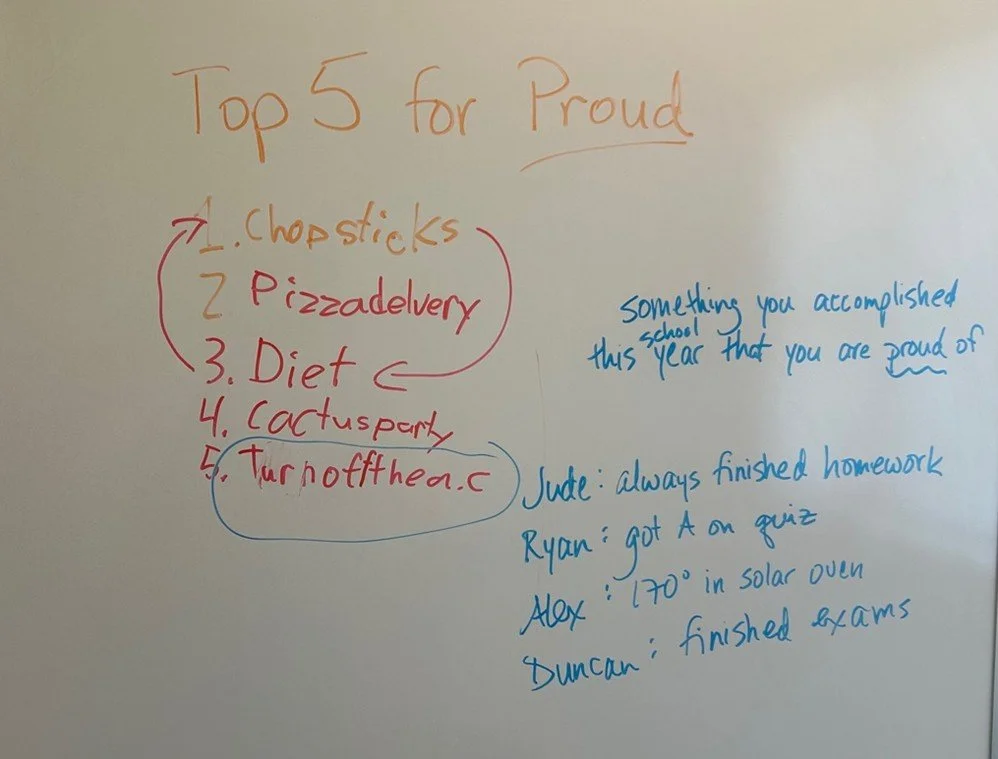 Top 5 for Proud
1. Chopsticks
2 Pizzadelvery
3. Diet
4. Cactusparty
5. Turnoffthea.c
something you accomplished
this school year that you are proud of
Jude: always finished homework
Ryan: got A on quiz
Alex: 170° in solar oven
Duncan: finished exams